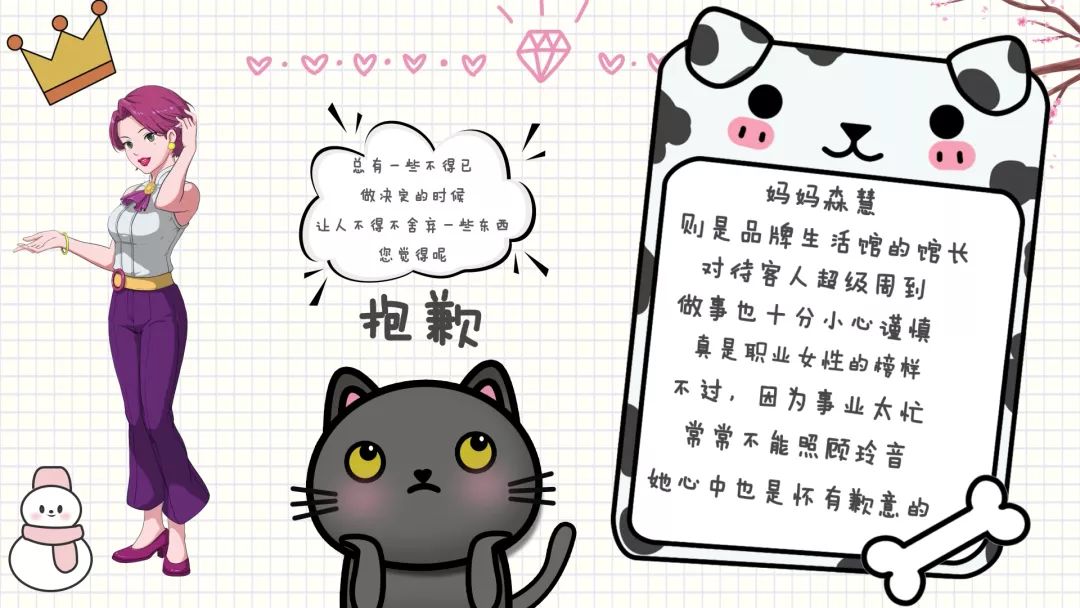 总有一些不得已
做决定的时候
让人不得不舍弃一些东西
您觉得呢
抱歉
妈妈森慧
则是品牌生活馆的馆长
对待客人超级周到
做事也十分小心谨慎
真是职业女性的榜样
不过，因为事业太忙
常常不能照顾玲音
她心中也是怀有歉意的